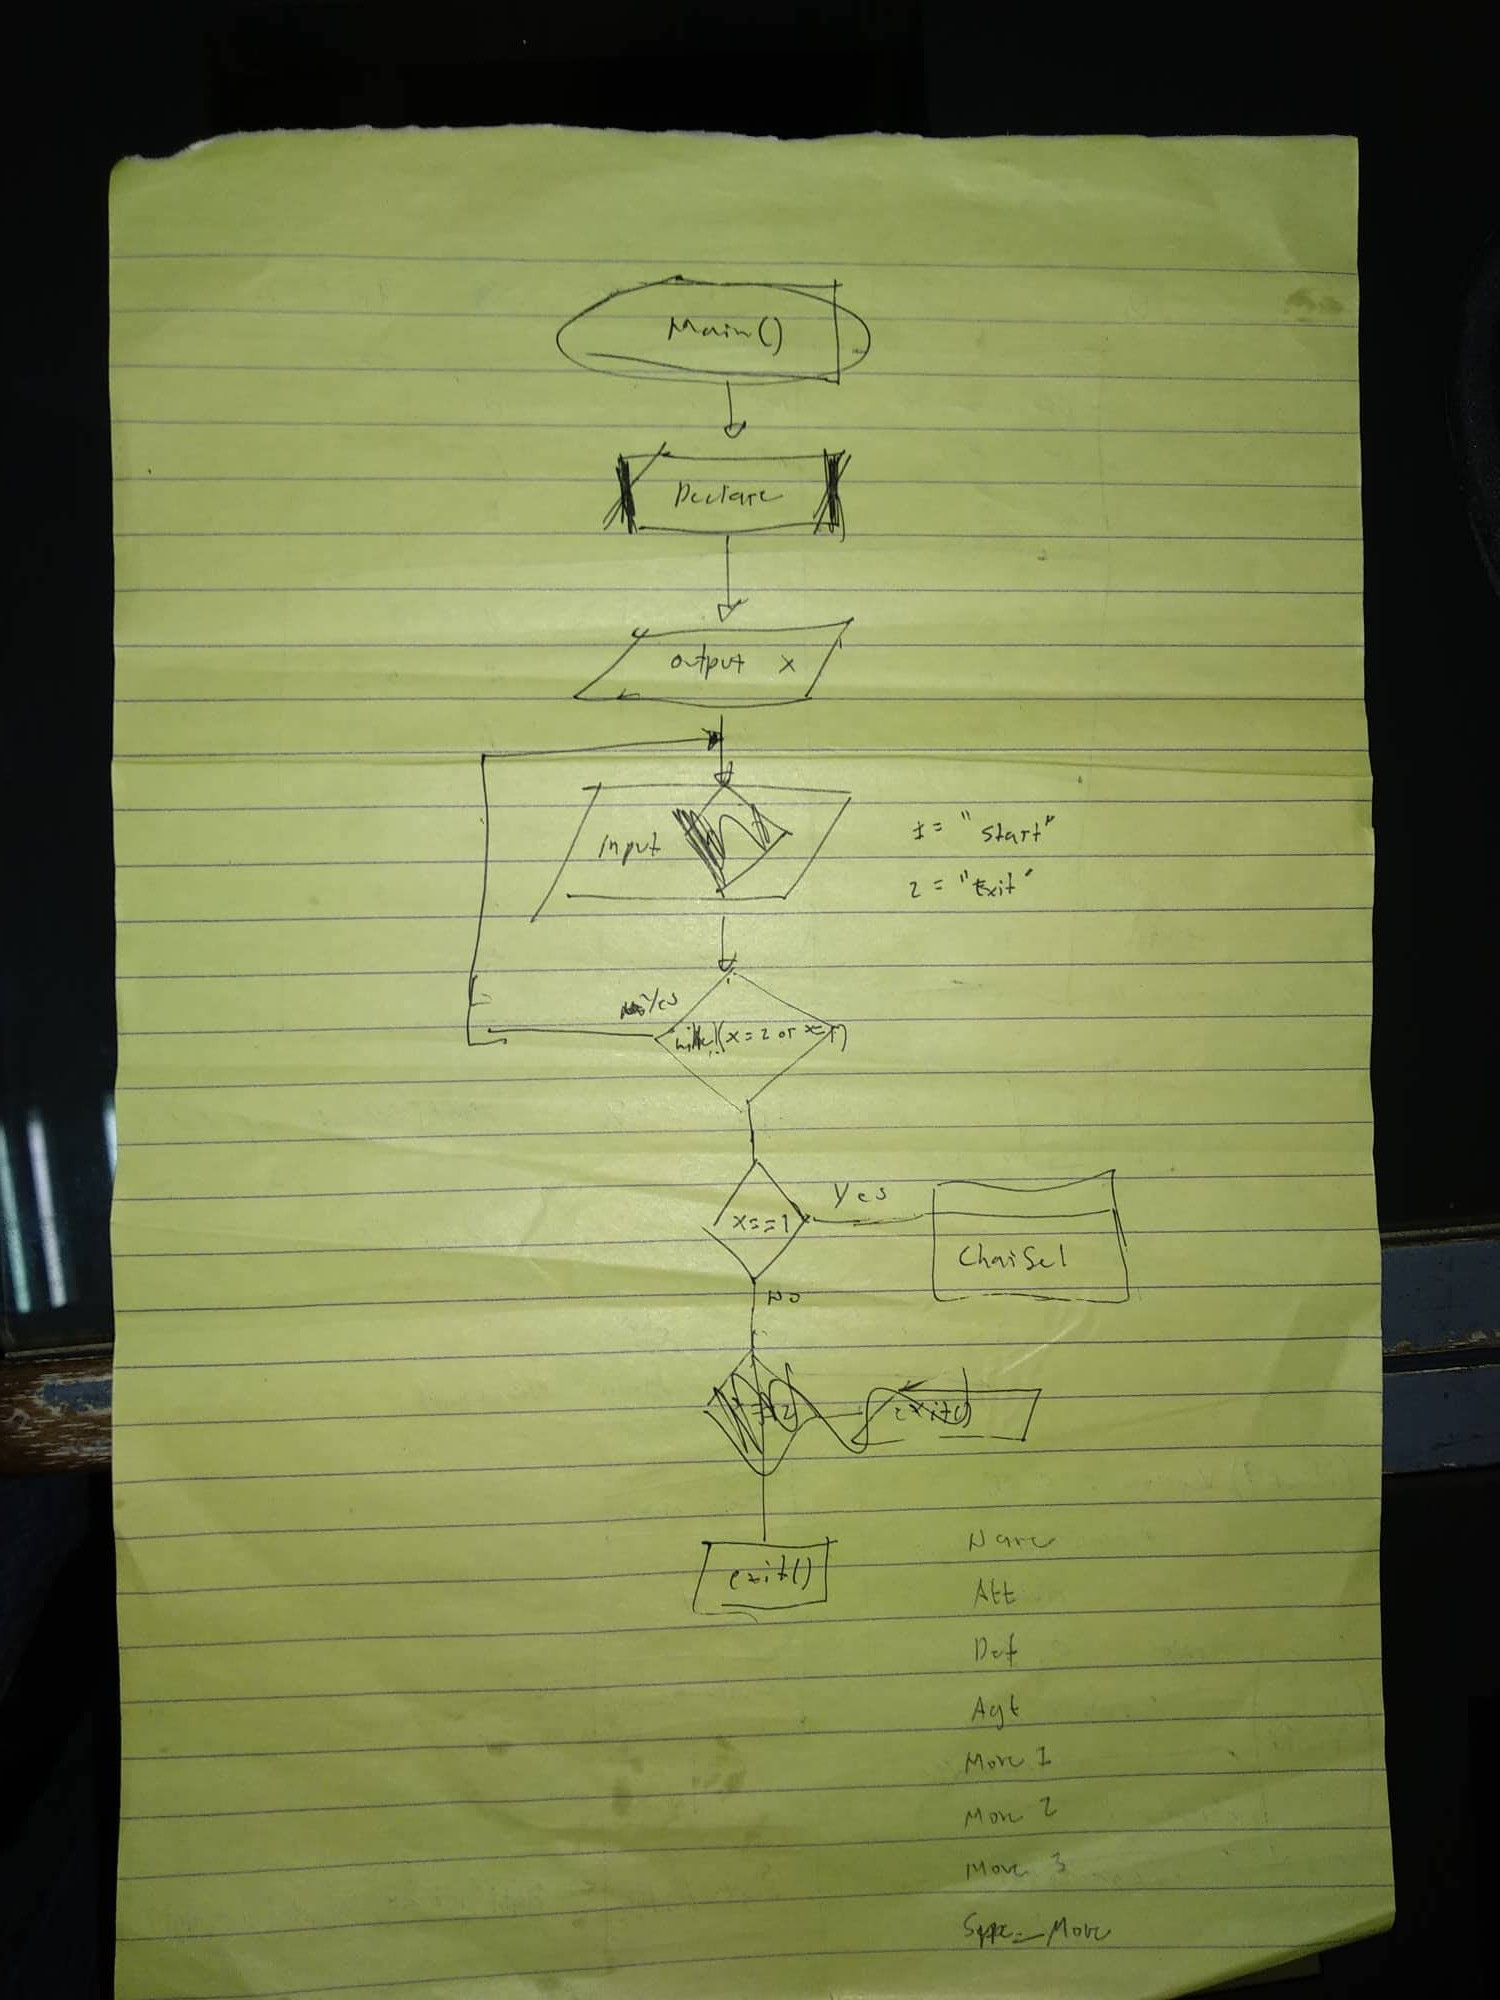 Main()
Declare
output x
Input
1 = "Start"
2 = "Exit"
Yes
(x = 2 or x = 1)
x==1
Yes
CharSel
No
exit()
exit()
Name
Att
Def
Agt
Move 1
Move 2
Move 3
Spec_Move